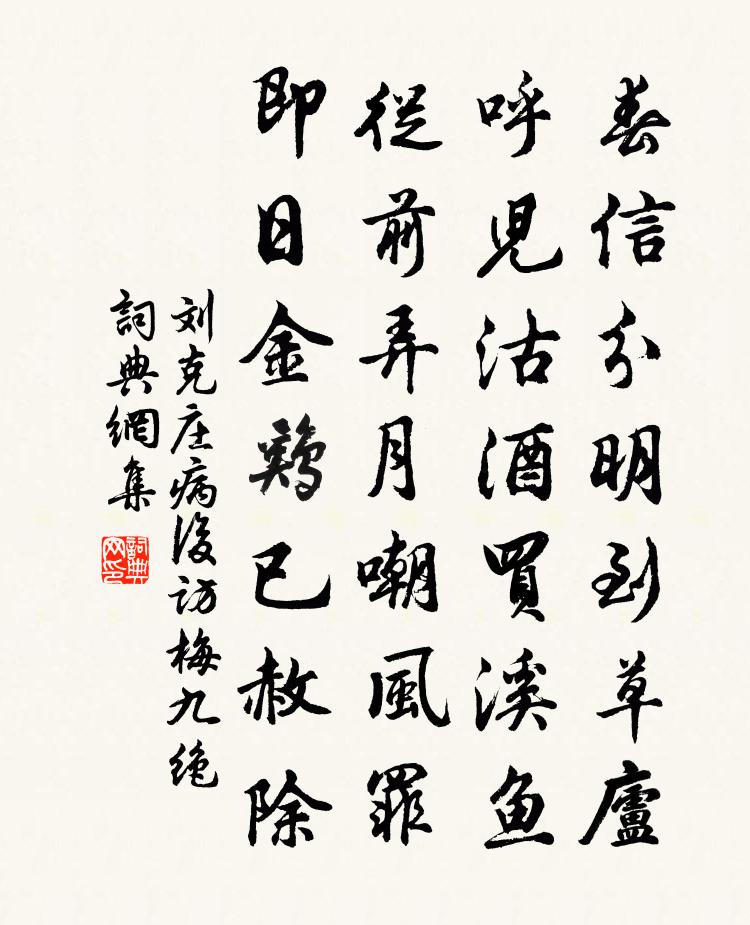 春信分明到草廬
呼児沽酒買溪魚
從前弄月嘲風罪
即日金鷄已赦除
刘克庄病後访梅九绝
詞典網集
詞典網印